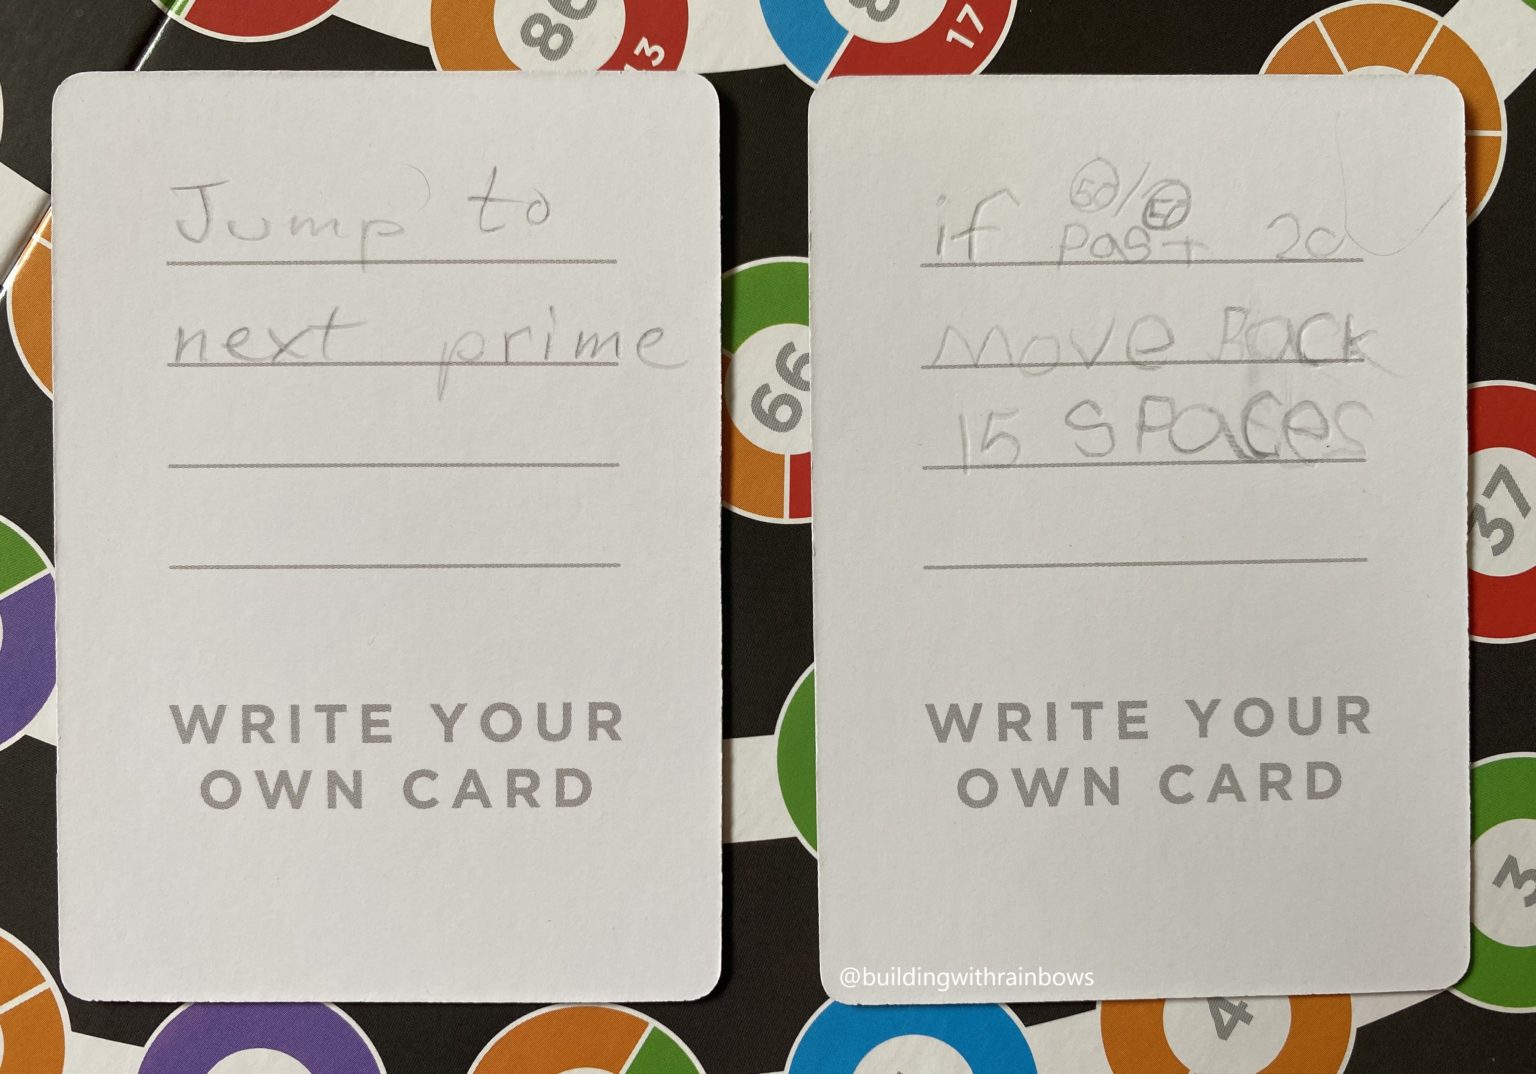 86
13
8
17
Jump to
next prime
WRITE YOUR
OWN CARD
66
50/50
if past 20
move Back
15 SPaces
WRITE YOUR
OWN CARD
@buildingwithrainbows
37
3
4